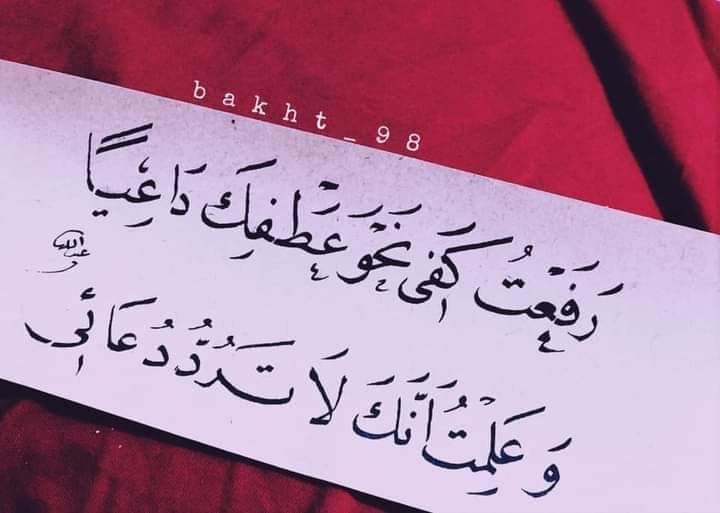 bakht_98
رَفَعْتُ كَفِي نَحْوَ عَطْفِكَ دَاعِياً
عبدالله
وَعَلِمْتُ أَنَّكَ لَا تَرُدُّ دُعَائِي